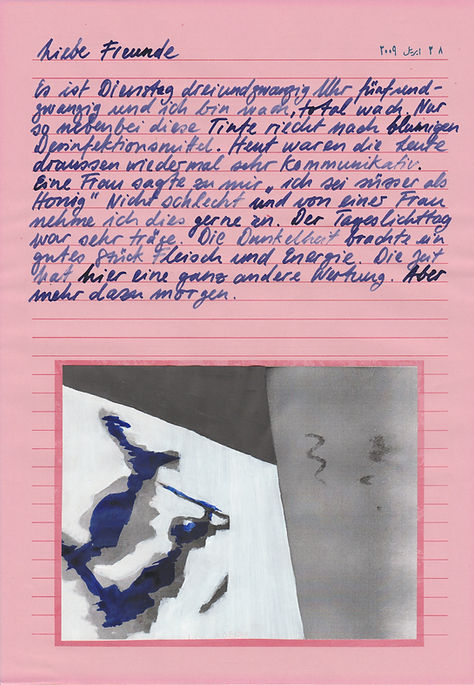 Liebe Freunde
٢٨ ابريل ٢٠٠٩
Es ist Dienstag dreiundzwanzig Uhr fünfund-
zwanzig und ich bin wach, total wach. Nur
so nebenbei diese Tinte riecht nach blumigen
Desinfektionsmittel. Heut waren die Leute
draussen wiedermal sehr kommunikativ.
Eine Frau sagte zu mir „ich sei süsser als
Honig" Nicht schlecht und von einer Frau
nehme ich dies gerne an. Der Tageslichttag
war sehr träge. Die Dunkelheit brachte ein
gutes Stück Fleisch und Energie. Die Zeit
hat hier eine ganz andere Wertung. Aber
mehr dazu morgen.